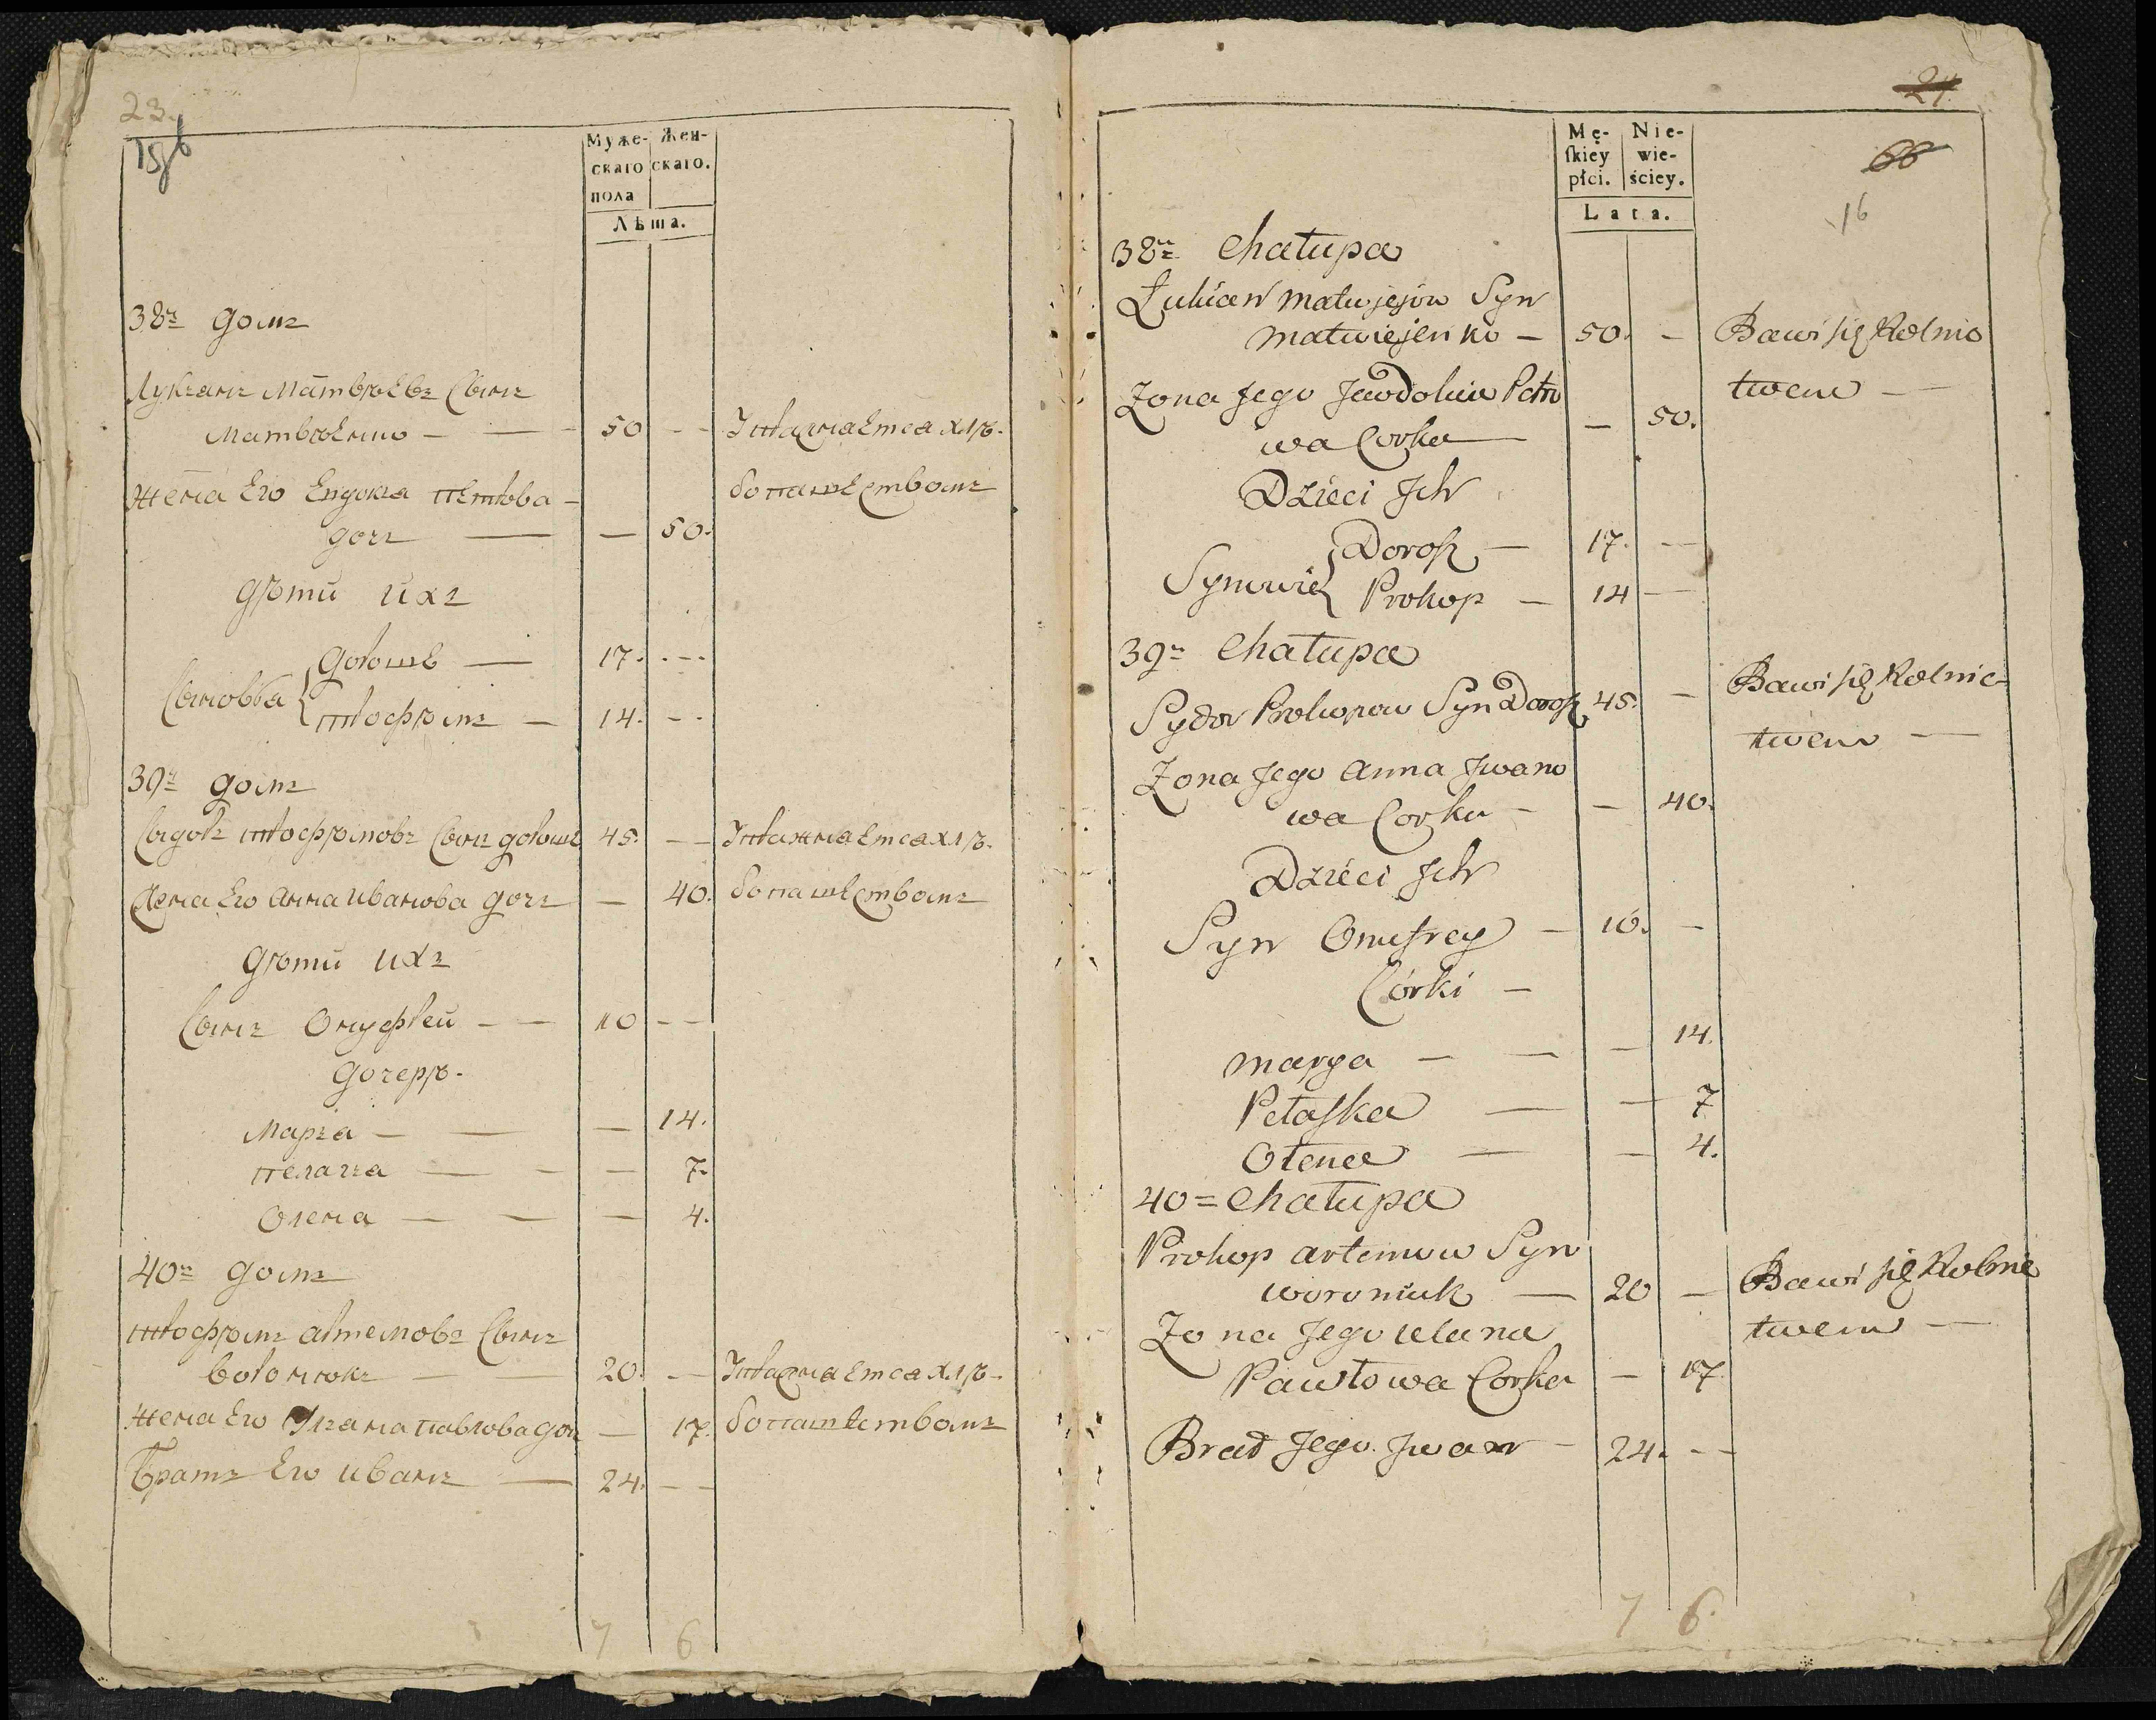 23.
15б
Муже-
скаго
пола
Жен-
скаго.
Лѣта.
38й домъ
Лукіанъ Матвѣевъ Сынъ
Матвѣенко — 50 - -
Упражнаетса хлѣ-
бопашеством
Жена Его Евдокіа Петрова
дочъ — — 50.
дѣти ихъ
Сыновьа { дорошъ — 17. - -
Профѣмъ — 14. - -
39й домъ
Сыдоръ Профѣмовъ Сынъ дорошъ 45. - -
Упражнаетса хлѣ-
бопашеством
Жена Его Анна Иванова дочъ — 40.
дѣти ихъ
Сынъ Онуфрей - - 10 - -
дочерѣ
Маріа — — 14.
Пелагіа — — 7.
Олена — — 4.
40й домъ
Профѣмъ Артемовъ Сынъ
Воронюкъ — 20. —
Упражнаетса хлѣ-
бопашествомъ
Жена Его Уліана Павлова доч — 17.
Братъ Его Иванъ — 24. - -
7 6
24.
66
16
Mę-
ſkiey
płci.
Nie-
wie-
ściey.
Lata.
38й Chałupa
Łukian Matwjejow Syn
Matwiejenko — 50. —
Bawi się Rolnic
twem —
Zona Jego Jewdokia Petro
wa Corka — 50.
Dzieci Jch
Synowie { Dorosz — 17. —
Prokop — 14 —
39й Chałupa
Sydor Prokopow Syn Dorosz 45. —
Bawi się Rolnic=
twem —
Zona Jego Anna Jwano
wa Corka — — 40.
Dzieci Jch
Syn Onufrey — 10. —
Córki —
Marya — — — 14.
Pełaſka — — 7
Ołena — — 4.
40= Chałupa
Prokop Artemow Syn
Woroniuk — 20 —
Bawi się Rolnic
twem —
Zona Jego Ulana
Pawłowa Corka — 17
Brat Jego Jwan — 24. - -
7 6.